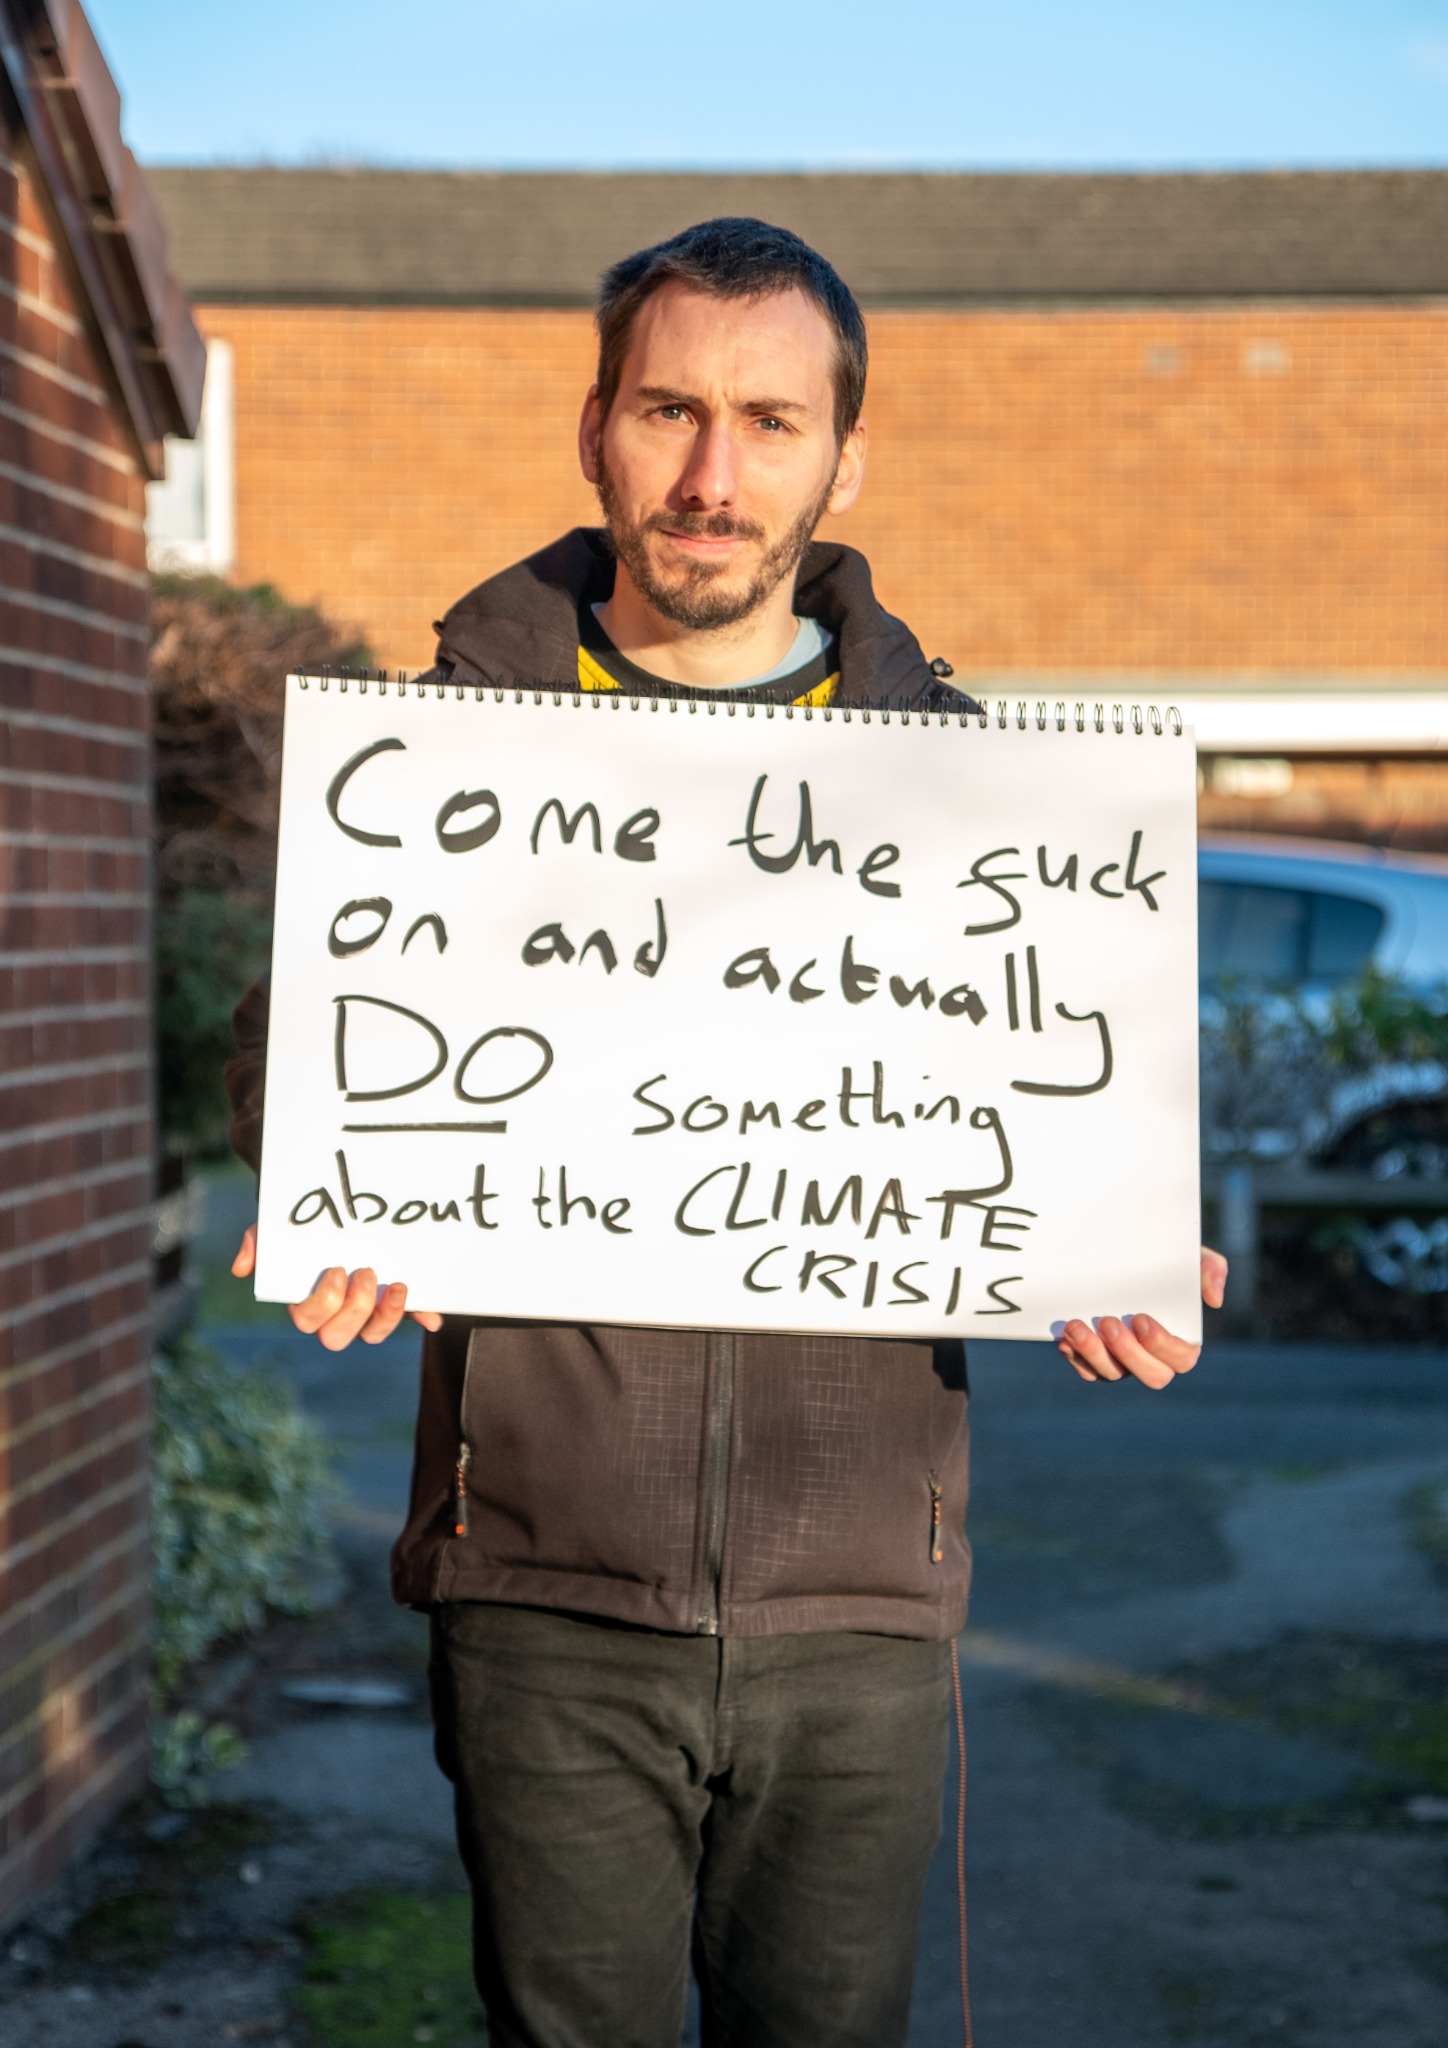 Come the fuck
on and actually
DO something
about the CLIMATE
CRISIS